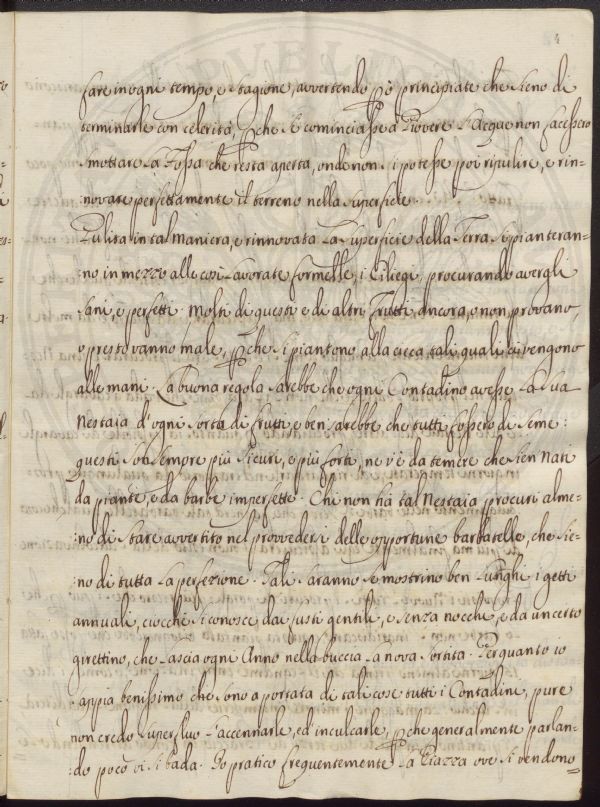 4
fare in ogni tempo, e stagione, avvertendo p̱ò principiate che sieno di
terminarle con celerità, p̱che se cominciasse a Piovere l'Acque non facessero
smottare la Fossa che resta aperta, onde non si potesse poi ripulire, e rin=
:novare perfettamente il terreno nella superficie.
Pulita in tal maniera, e rinnovata la superficie della Terra si pianteran=
:no in mezzo alle così lavorate formelle, i Ciliegi, procurando avergli
sani, e perfetti. Molti di questi e di altri Frutti ancora, o non provano,
o presto vanno male, p̱che si piantono alla cieca tali quali ci vengono
alle mani. La buona regola sarebbe che ogni Contadino avesse la sua
Nestaia d'ogni sorta di frutti, e ben sarebbe che tutti fossero di seme:
questi son sempre più sicuri, e più forti, ne v'è da temere che sien nati
da piante, e da barbe imperfette. Chi non hà tal Nestaia procuri alme=
:no di stare avvertito nel provvedersi delle opportune barbatelle, che sie=
:no di tutta la perfezione. Tali saranno se mostrino ben lunghi i getti
annuali, ciocchè si conosce dai fusti gentili, e senza nocchi, e da un certo
girettino, che lascia ogni Anno nella buccia la nova sortita. Perquanto io
sappia benissimo che sono a portata di tali cose tutti i Contadini, pure
non credo superfluo l'accennarle, ed inculcarle, p̱che generalmente parlan=
:do poco vi si bada. Io pratico frequentemente la Piazza ove si vendono=